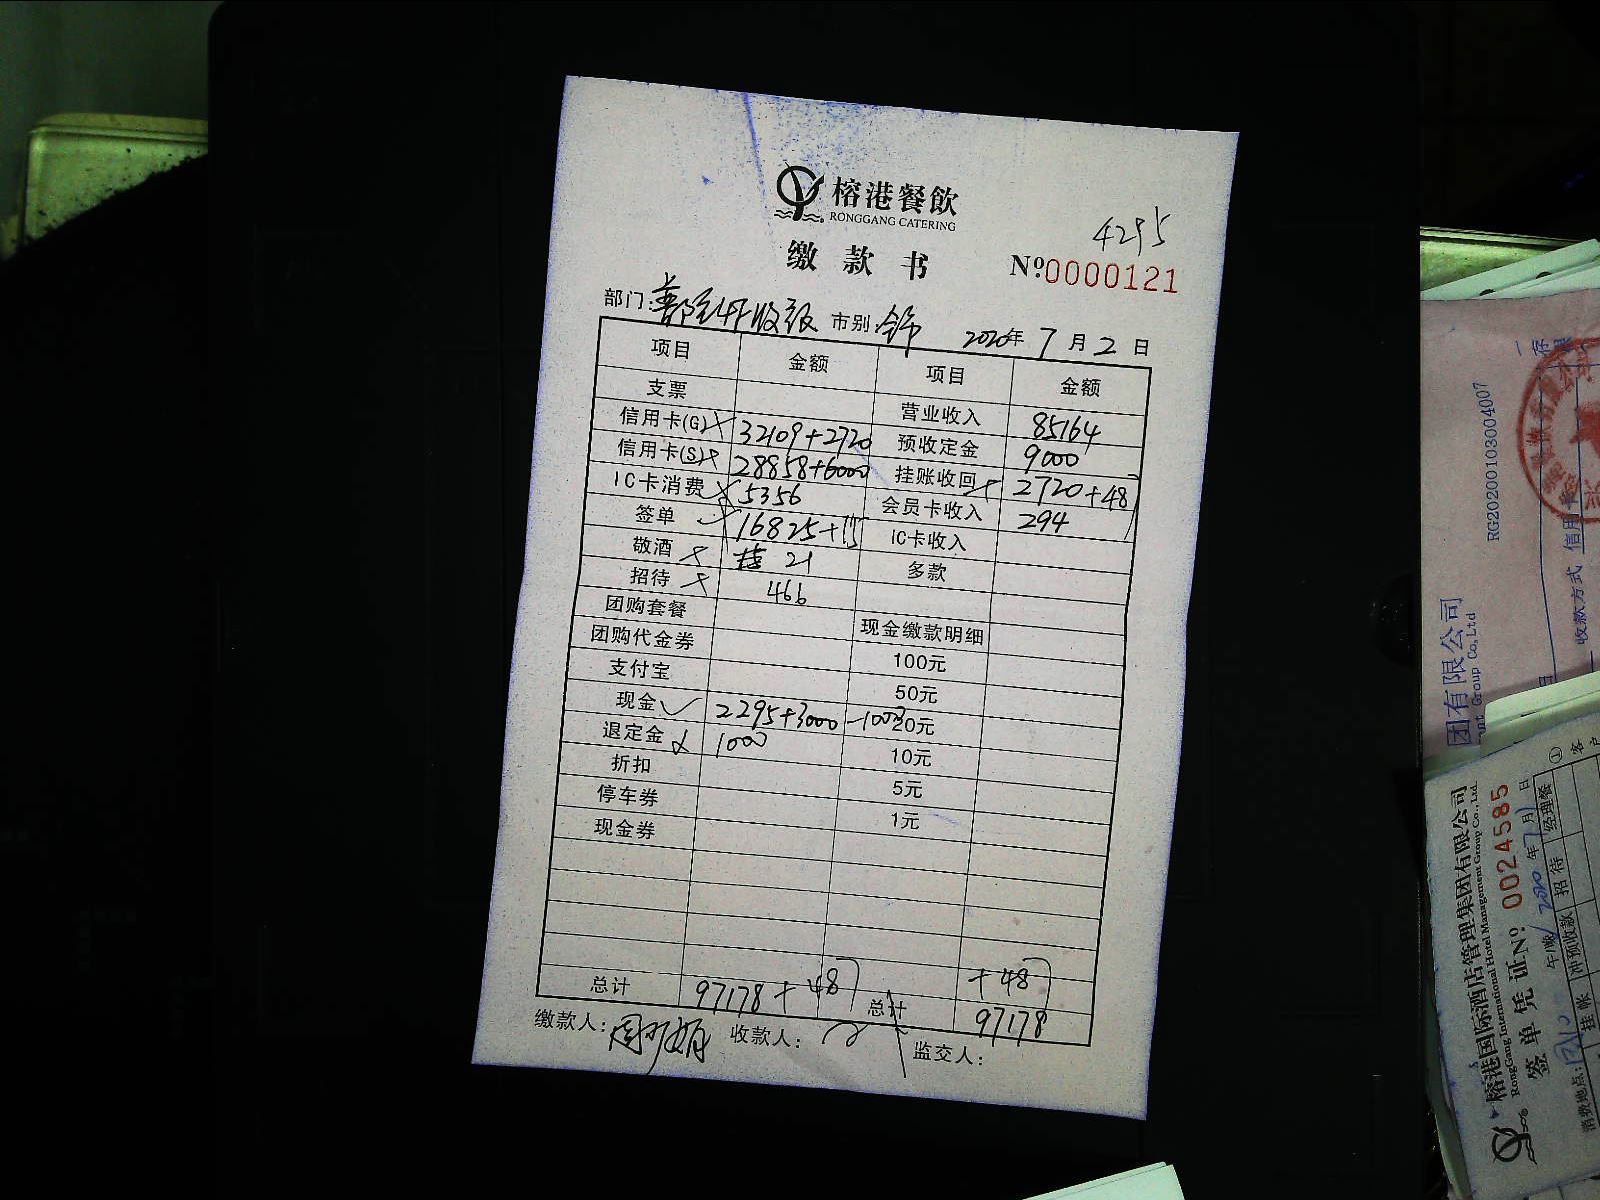 榕港餐飲
RONGGANG CATERING
4295
缴款书 Nº0000121
部门: 市别: 2020年7月2日
项目 金额 项目 金额
支票 营业收入 85164
信用卡(G) 32109+2720 预收定金 9000
信用卡(S) 28858+6000 挂账收回 2720+48
IC卡消费 5356 会员卡收入 294
签单 16825+ IC卡收入
敬酒 21 多款
招待 466
团购套餐 现金缴款明细
团购代金券 100元
支付宝 50元
现金 2295+3000-1000 20元
退定金 1000 10元
折扣 5元
停车券 1元
现金券
+48
总计 97178+48 总计 97178
缴款人: 收款人: 监交人:
RG20200103004007
收款方式 信用卡
团有限公司
Group Co,Ltd
榕港国际酒店管理集团有限公司
RongGang International Hotel Management Group Co., Ltd.
签单凭证Nº 0024585
午/晚 2020年7月1日
消费地点:
挂帐 冲预收款 招待 经理餐
①
客户